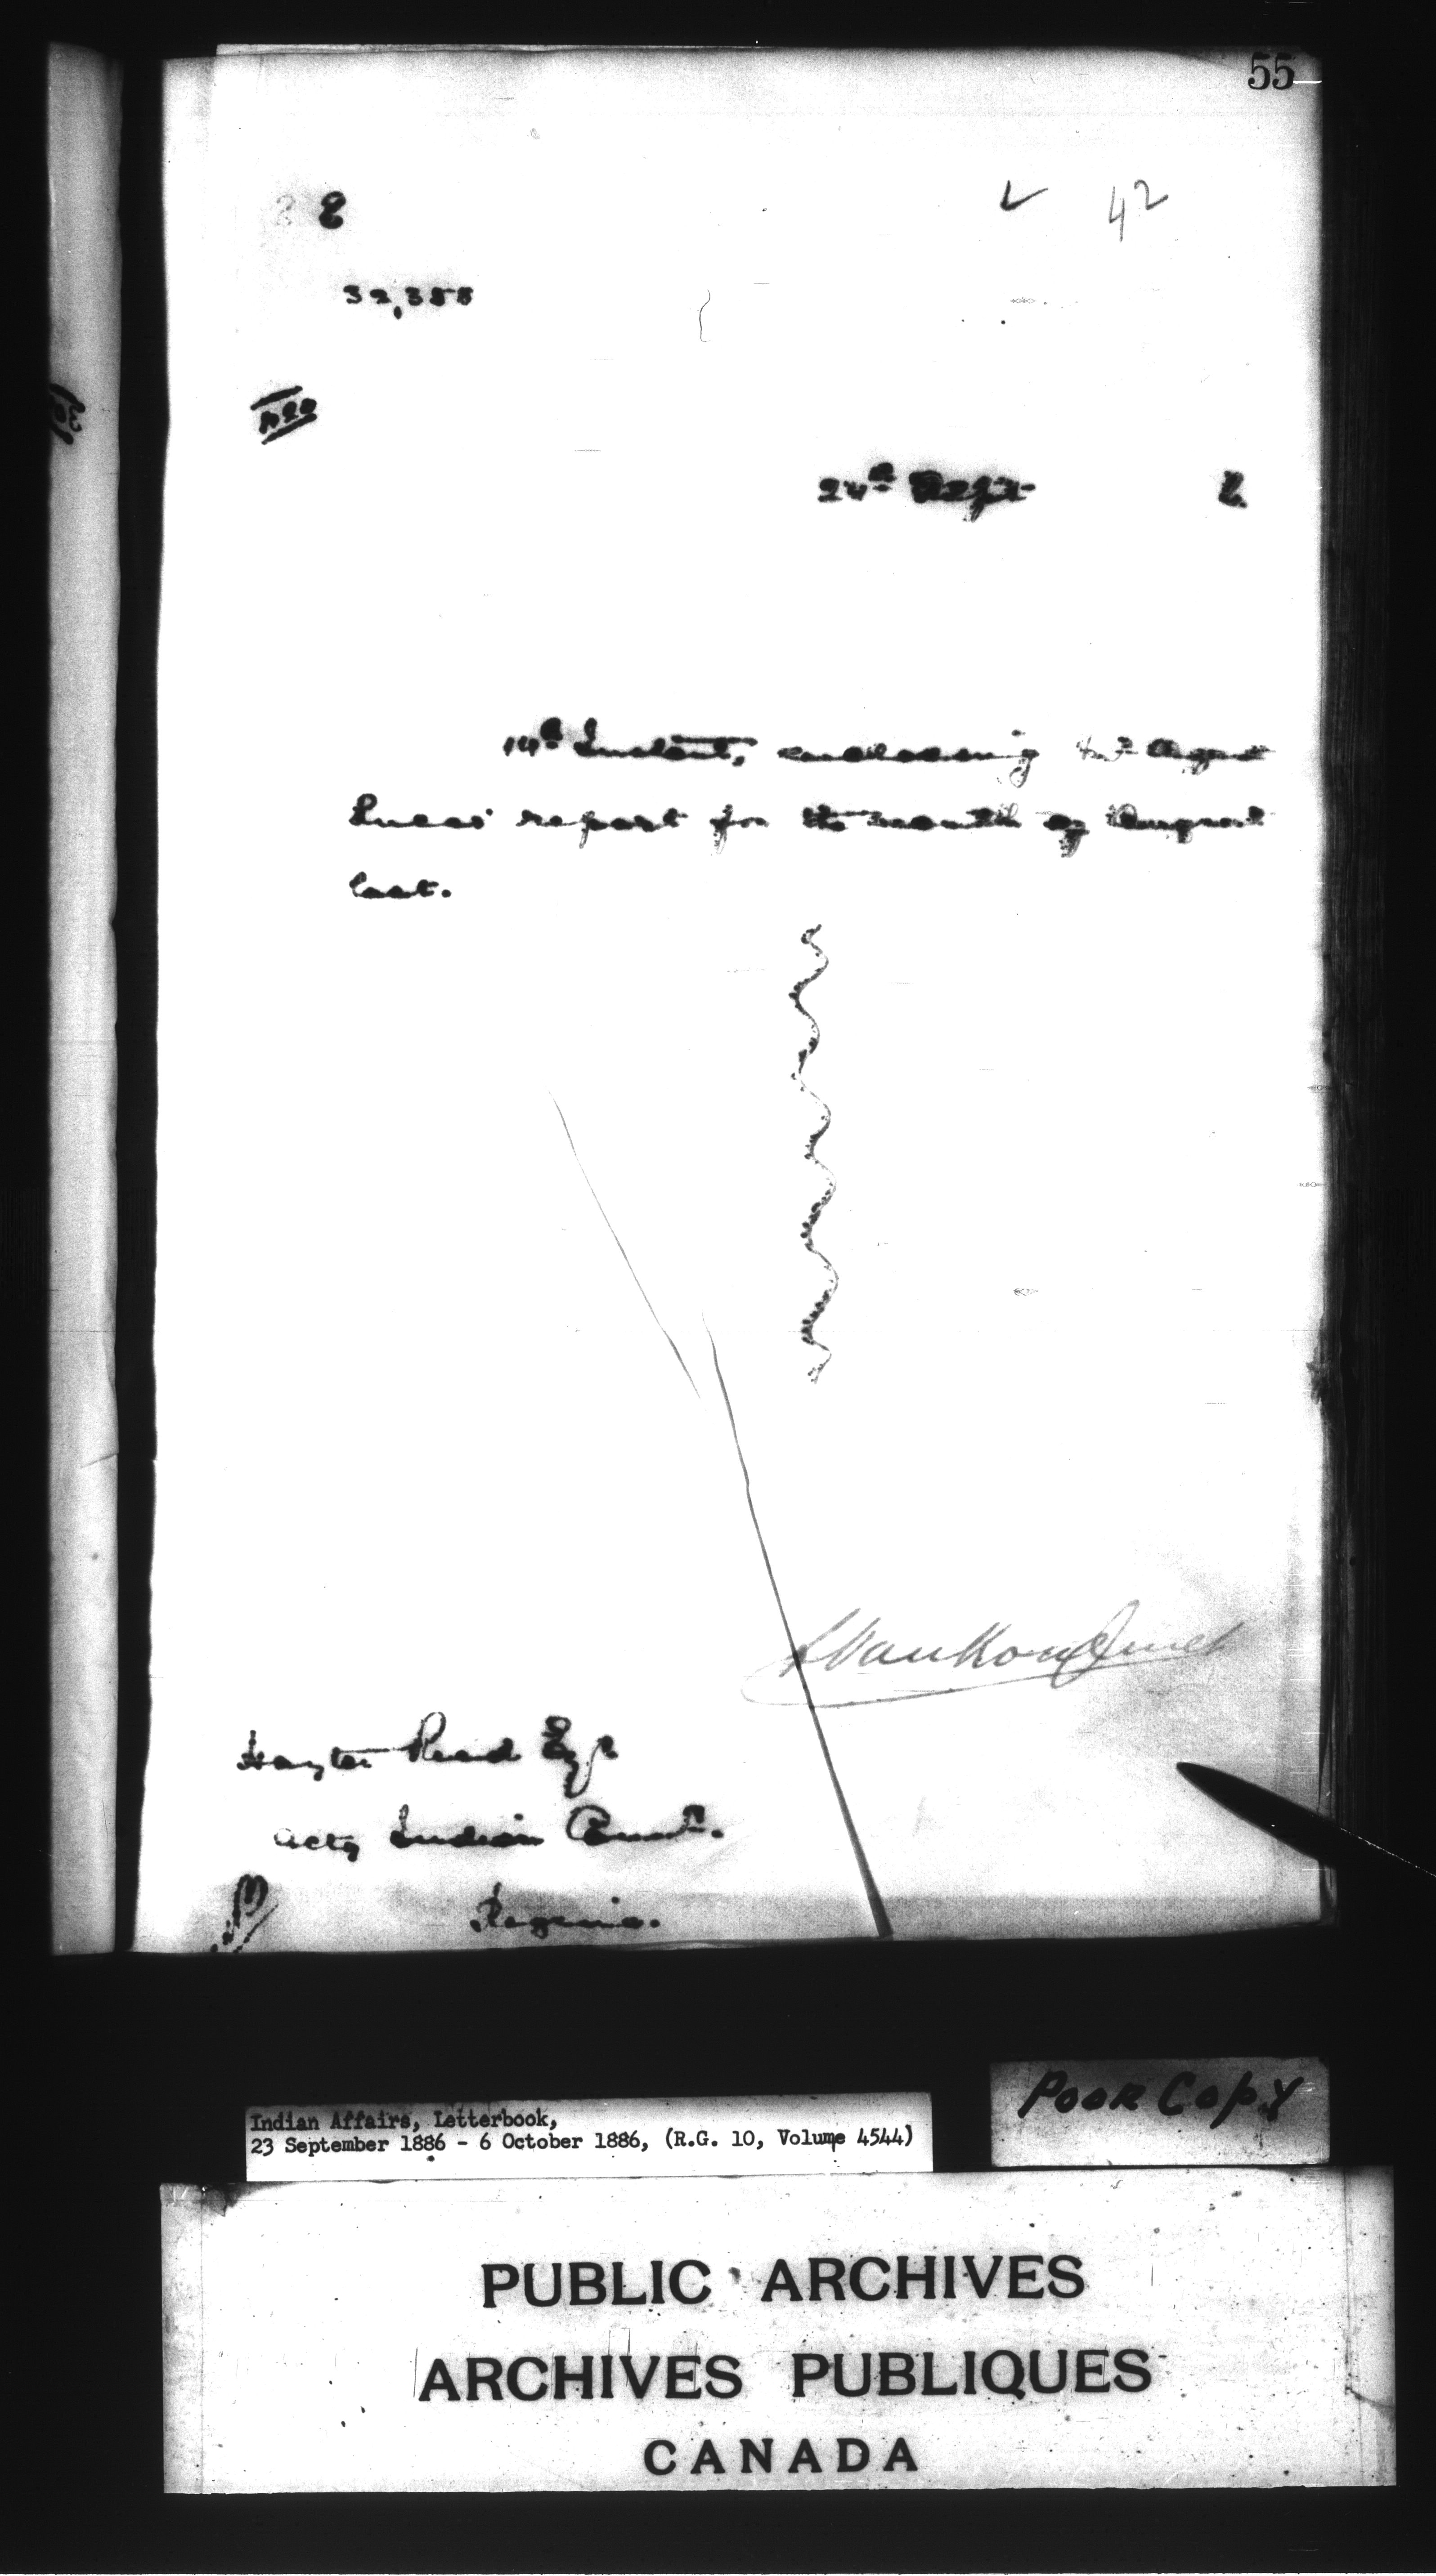 55
42
32,355
24th Sept 6
14th Instant, enclosing Agent
Lucas' report for the month of August
last.
L VanKoughnet
Hayter Reed Esqr
Actg Indian Commr.
Regina.
Poor Copy
Indian Affairs, Letterbook,
23 September 1886 - 6 October 1886, (R.G. 10, Volume 4544)
PUBLIC ARCHIVES
ARCHIVES PUBLIQUES
CANADA